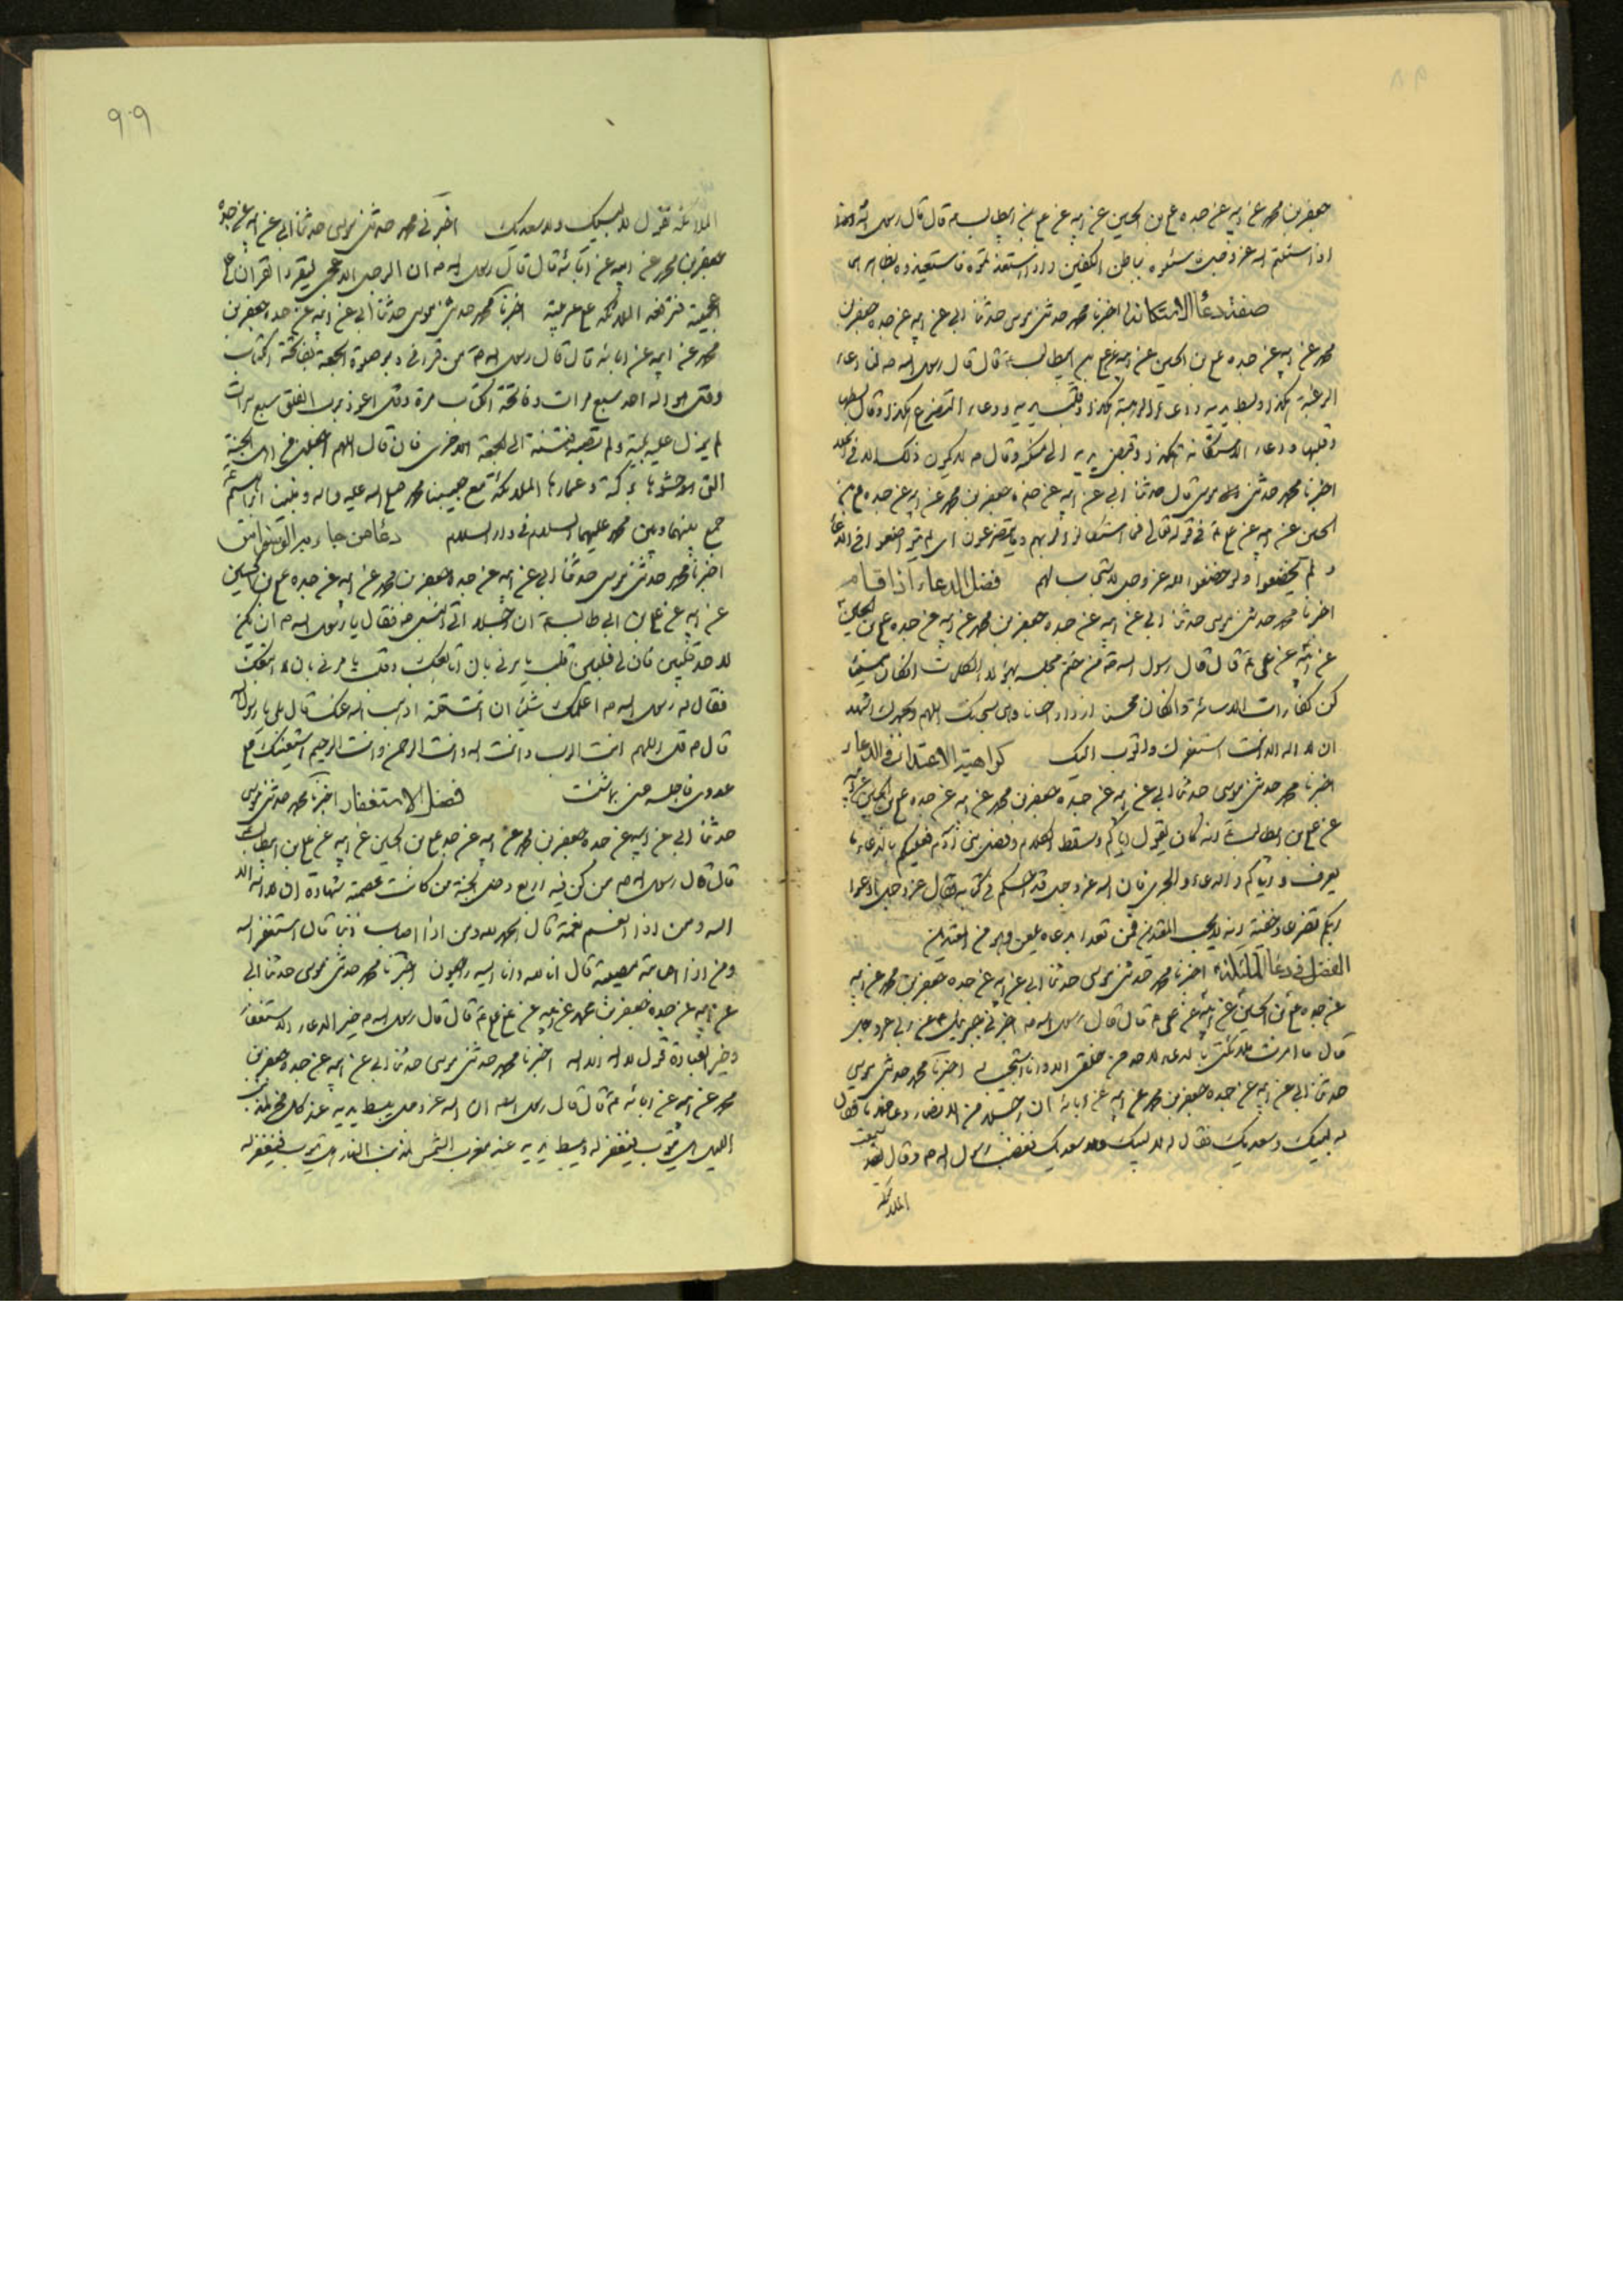 جعفر بن محمد عن ابيه عن جده على بن الحسين عن ابيه عن على بن ابيطالب ع قال قال رسول الله
اذا سئلتم الله عز وجل سئلوه بباطن الكفين واذا استعذتموه فاستعيذوه بظاهرهما
صفة دعاء الاستكانة اخبرنا محمد حدثنى موسى حدثنا ابى عن ابيه عن جده جعفر بن
محمد عن ابيه عن جده على بن الحسين عن ابيه عن على بن ابيطالب ع قال قال رسول الله ص ان دعاء
الرغبة هكذا وبسط يديه ودعاء الرهبة هكذا وقلب يديه ودعاء التضرع هكذا وقال
وقلبها ودعاء الاستكانة هكذا وقبض يديه الى منكبه وقال م لا يكون ذلك الا فى
اخبرنا محمد حدثنى موسى قال حدثنا ابى عن ابيه عن جده جعفر بن محمد عن ابيه عن جده على بن
الحسين عن ابيه عن على ع فى قوله تعالى فما استكانوا لربهم وما يتضرعون اى لم يتواضعوا فى الدعاء
ولم يخضعوا ولو خضعوا لله عز وجل لاستجاب لهم فضل الدعاء اذا قام
اخبرنا محمد حدثنى موسى حدثنا ابى عن ابيه عن جده جعفر بن محمد عن ابيه عن جده على بن الحسين
عن ابيه عن على ع قال قال رسول الله ص من ختم مجلسه بهؤلاء الكلمات ان كان مسيئا
كن كفارات الاساءة وان كان محسنا ازداد احسانا وهى سبحانك اللهم وبحمدك اشهد
ان لا اله الا انت استغفرك واتوب اليك كراهية الاعتداء فى الدعاء
اخبرنا محمد حدثنى موسى حدثنا ابى عن ابيه عن جده جعفر بن محمد عن ابيه عن جده على بن الحسين عن ابيه
عن على بن ابيطالب ع انه كان يقول اياكم وسقط الكلام فعليكم بالدعاء ما
يعرف واياكم والدعاء فان الله عز وجل فى كتابه فقال عز وجل ادعوا
ربكم تضرعا وخفية انه لا يحب المعتدين فمن تعدا بدعاه فهو من المعتدين
الفضل فى دعاء الملائكة اخبرنا محمد حدثنى موسى حدثنا ابى عن ابيه عن جده جعفر بن محمد عن ابيه
عن جده على بن الحسين عن ابيه عن على ع قال قال رسول الله ص اخبرنى جبرئيل ع عن ربى عز وجل
قال ما امرت ملائكتى بالدعاء لاحد من خلقى الا وانا استجيب اخبرنا محمد حدثنى موسى
حدثنا ابى عن ابيه عن جده جعفر بن محمد عن ابيه عن ابائه ان رجلا من الانصار دعا فقال
له لبيك وسعديك فقال له لا لبيك ولا سعديك فغضب رسول الله ص وقال لقد سمعت
الملائكة
٩٠٩
الملائكة تقول لا لبيك ولا سعديك اخبرنى محمد حدثنى موسى حدثنا ابى عن ابيه عن جده
جعفر بن محمد عن ابيه عن ابائه قال قال رسول الله ص ان الرجل الاعجمى ليقرء القرآن على
اعجميته فترفعه الملائكة على عربيته اخبرنا محمد حدثنى موسى حدثنا ابى عن ابيه عن جده جعفر بن
محمد عن ابيه عن ابائه قال قال رسول الله ص من قرأ فى دبر صلوة الجمعة بفاتحة الكتاب
وقل هو الله احد سبع مرات وفاتحة الكتاب مرة وقل اعوذ برب الفلق سبع مرات
لم ينزل عليه بلية ولم تصبه فتنة الى الجمعة الاخرى فان قال اللهم اجعلنى من اهل الجنة
التى حشوها بركة وعمارها الملائكة مع نبينا محمد صلى الله عليه واله وابينا ابراهيم
جمع بينهما وبين محمد عليهما السلام فى دار السلام دعاء من
اخبرنا محمد حدثنى موسى حدثنا ابى عن ابيه عن جده جعفر بن محمد عن ابيه عن جده على بن الحسين
عن ابيه عن على بن ابى طالب ع ان رجلا اتى النبى ص فقال يا رسول الله ص ان يكن
لاحد قلبين فان لى قلبين قلب يامرنى بان اتابعك وقلب يامرنى بان لا اتبعك
فقال له رسول الله ص اعلمك شيئا ان انت قلته اذهب الله عنك قال بلى يا رسول الله
قال ص قل اللهم انت الرب وانت الله وانت الرحمن وانت الرحيم استعينك على
عدوى فاحبسه عنى بما شئت فضل الاستغفار اخبرنا محمد حدثنى موسى
حدثنا ابى عن ابيه عن جده جعفر بن محمد عن ابيه عن جده على بن الحسين عن ابيه عن على بن ابيطالب
قال قال رسول الله ص من كن فيه اربع دخل الجنة من كانت عصمته شهادة ان لا اله الا
الله ومن اذا انعم نعمة قال الحمد لله ومن اذا اصاب ذنبا قال استغفر الله
ومن اذا اصابته مصيبة قال انا لله وانا اليه راجعون اخبرنا محمد حدثنى موسى حدثنا ابى
عن ابيه عن جده جعفر بن محمد عن ابيه عن على ع قال قال رسول الله ص خير الدعاء الاستغفار
وخير العبادة قول لا اله الا الله اخبرنا محمد حدثنى موسى حدثنا ابى عن ابيه عن جده جعفر بن
محمد عن ابيه عن ابائه ع قال قال رسول الله ان الله عز وجل يبسط يديه عند كل فجر لمذنب
الليل هل يتوب فيغفر له ويبسط يديه عند مغرب الشمس لمذنب النهار هل يتوب فيغفر له